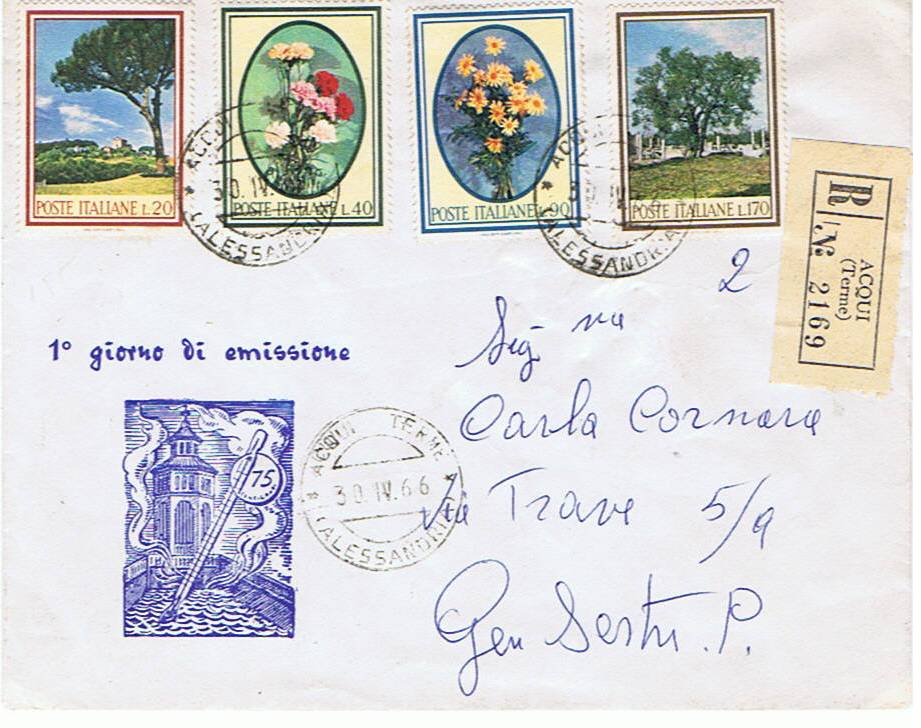 POSTE ITALIANE L.20
POSTE ITALIANE L.40
POSTE ITALIANE L.90
POSTE ITALIANE L.170
ACQUI
30.IV
(ALESSANDRIA
ACQUI
(ALESSANDRIA
R
N. 2169
ACQUI
(Terme)
2
1° giorno di emissione
75
ACQUI TERME
30.IV.66
(ALESSANDRIA)
Sig na
Carla Cornara
Via Trave 5/9
Gen Sestri P.